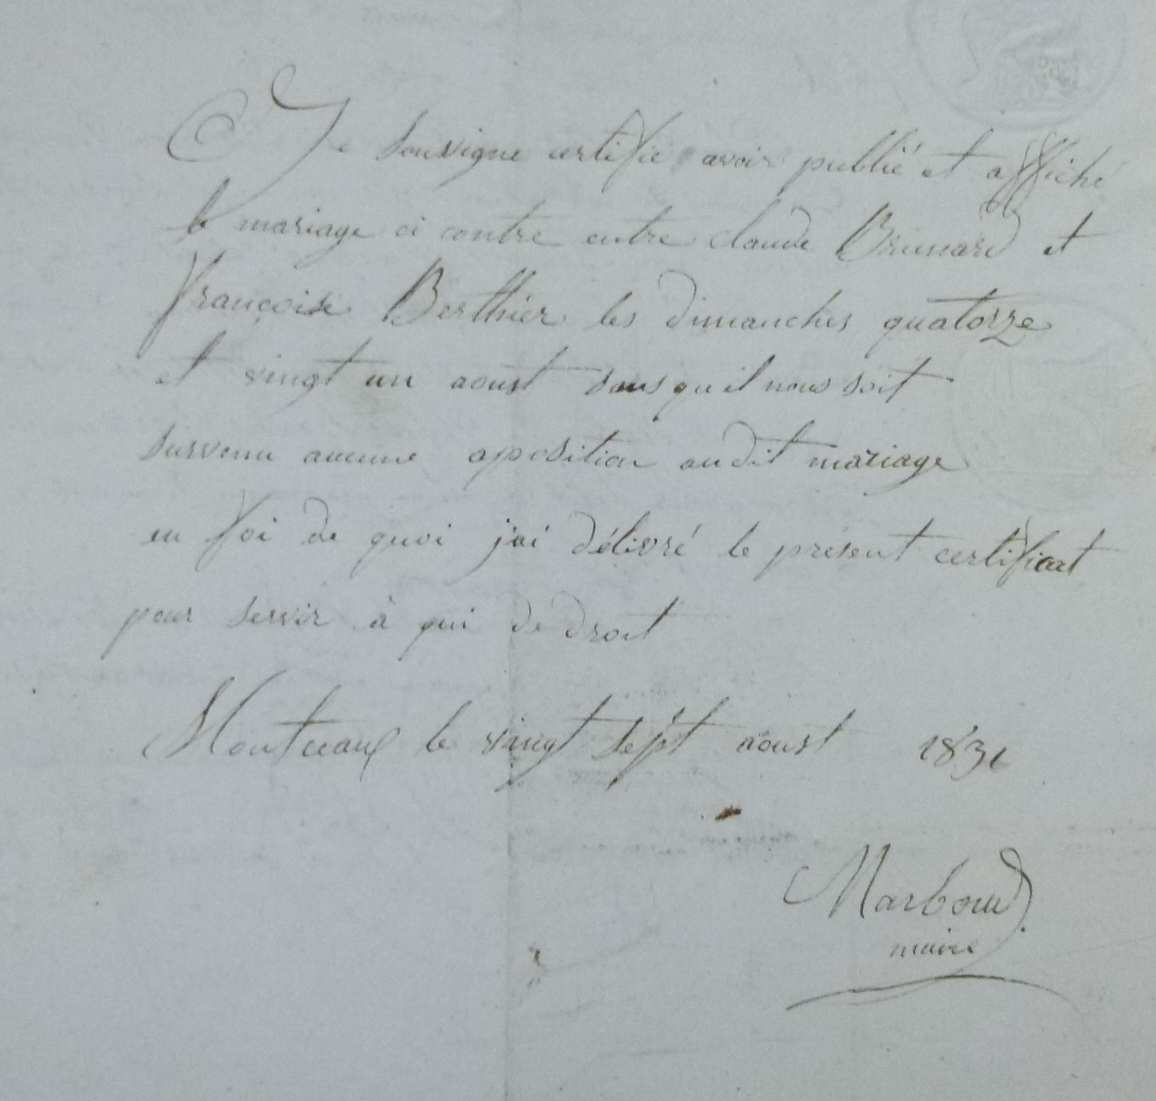 Je Soussigne certifie avoir publié et affiché
le mariage ci contre entre claude Brunard et
françoise Berthier les dimanches quatorze
et vingt un aoust sans qu il nous soit
survenu aucune oposition au dit mariage
en foi de quoi j'ai délivré le présent certificat
pour servir à qui de droit
Montceaux le vingt sept aoust 1831
Marboud
maire